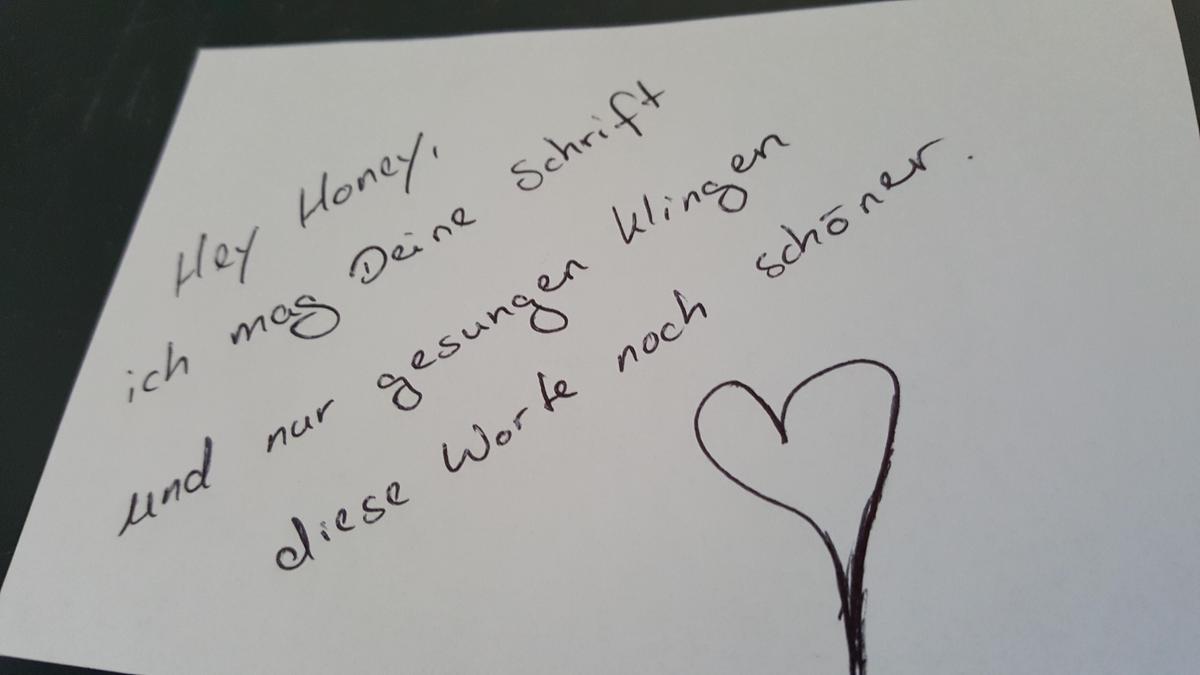 Hey Honey,
ich mag Deine Schrift
und nur gesungen klingen
diese Worte noch schöner.